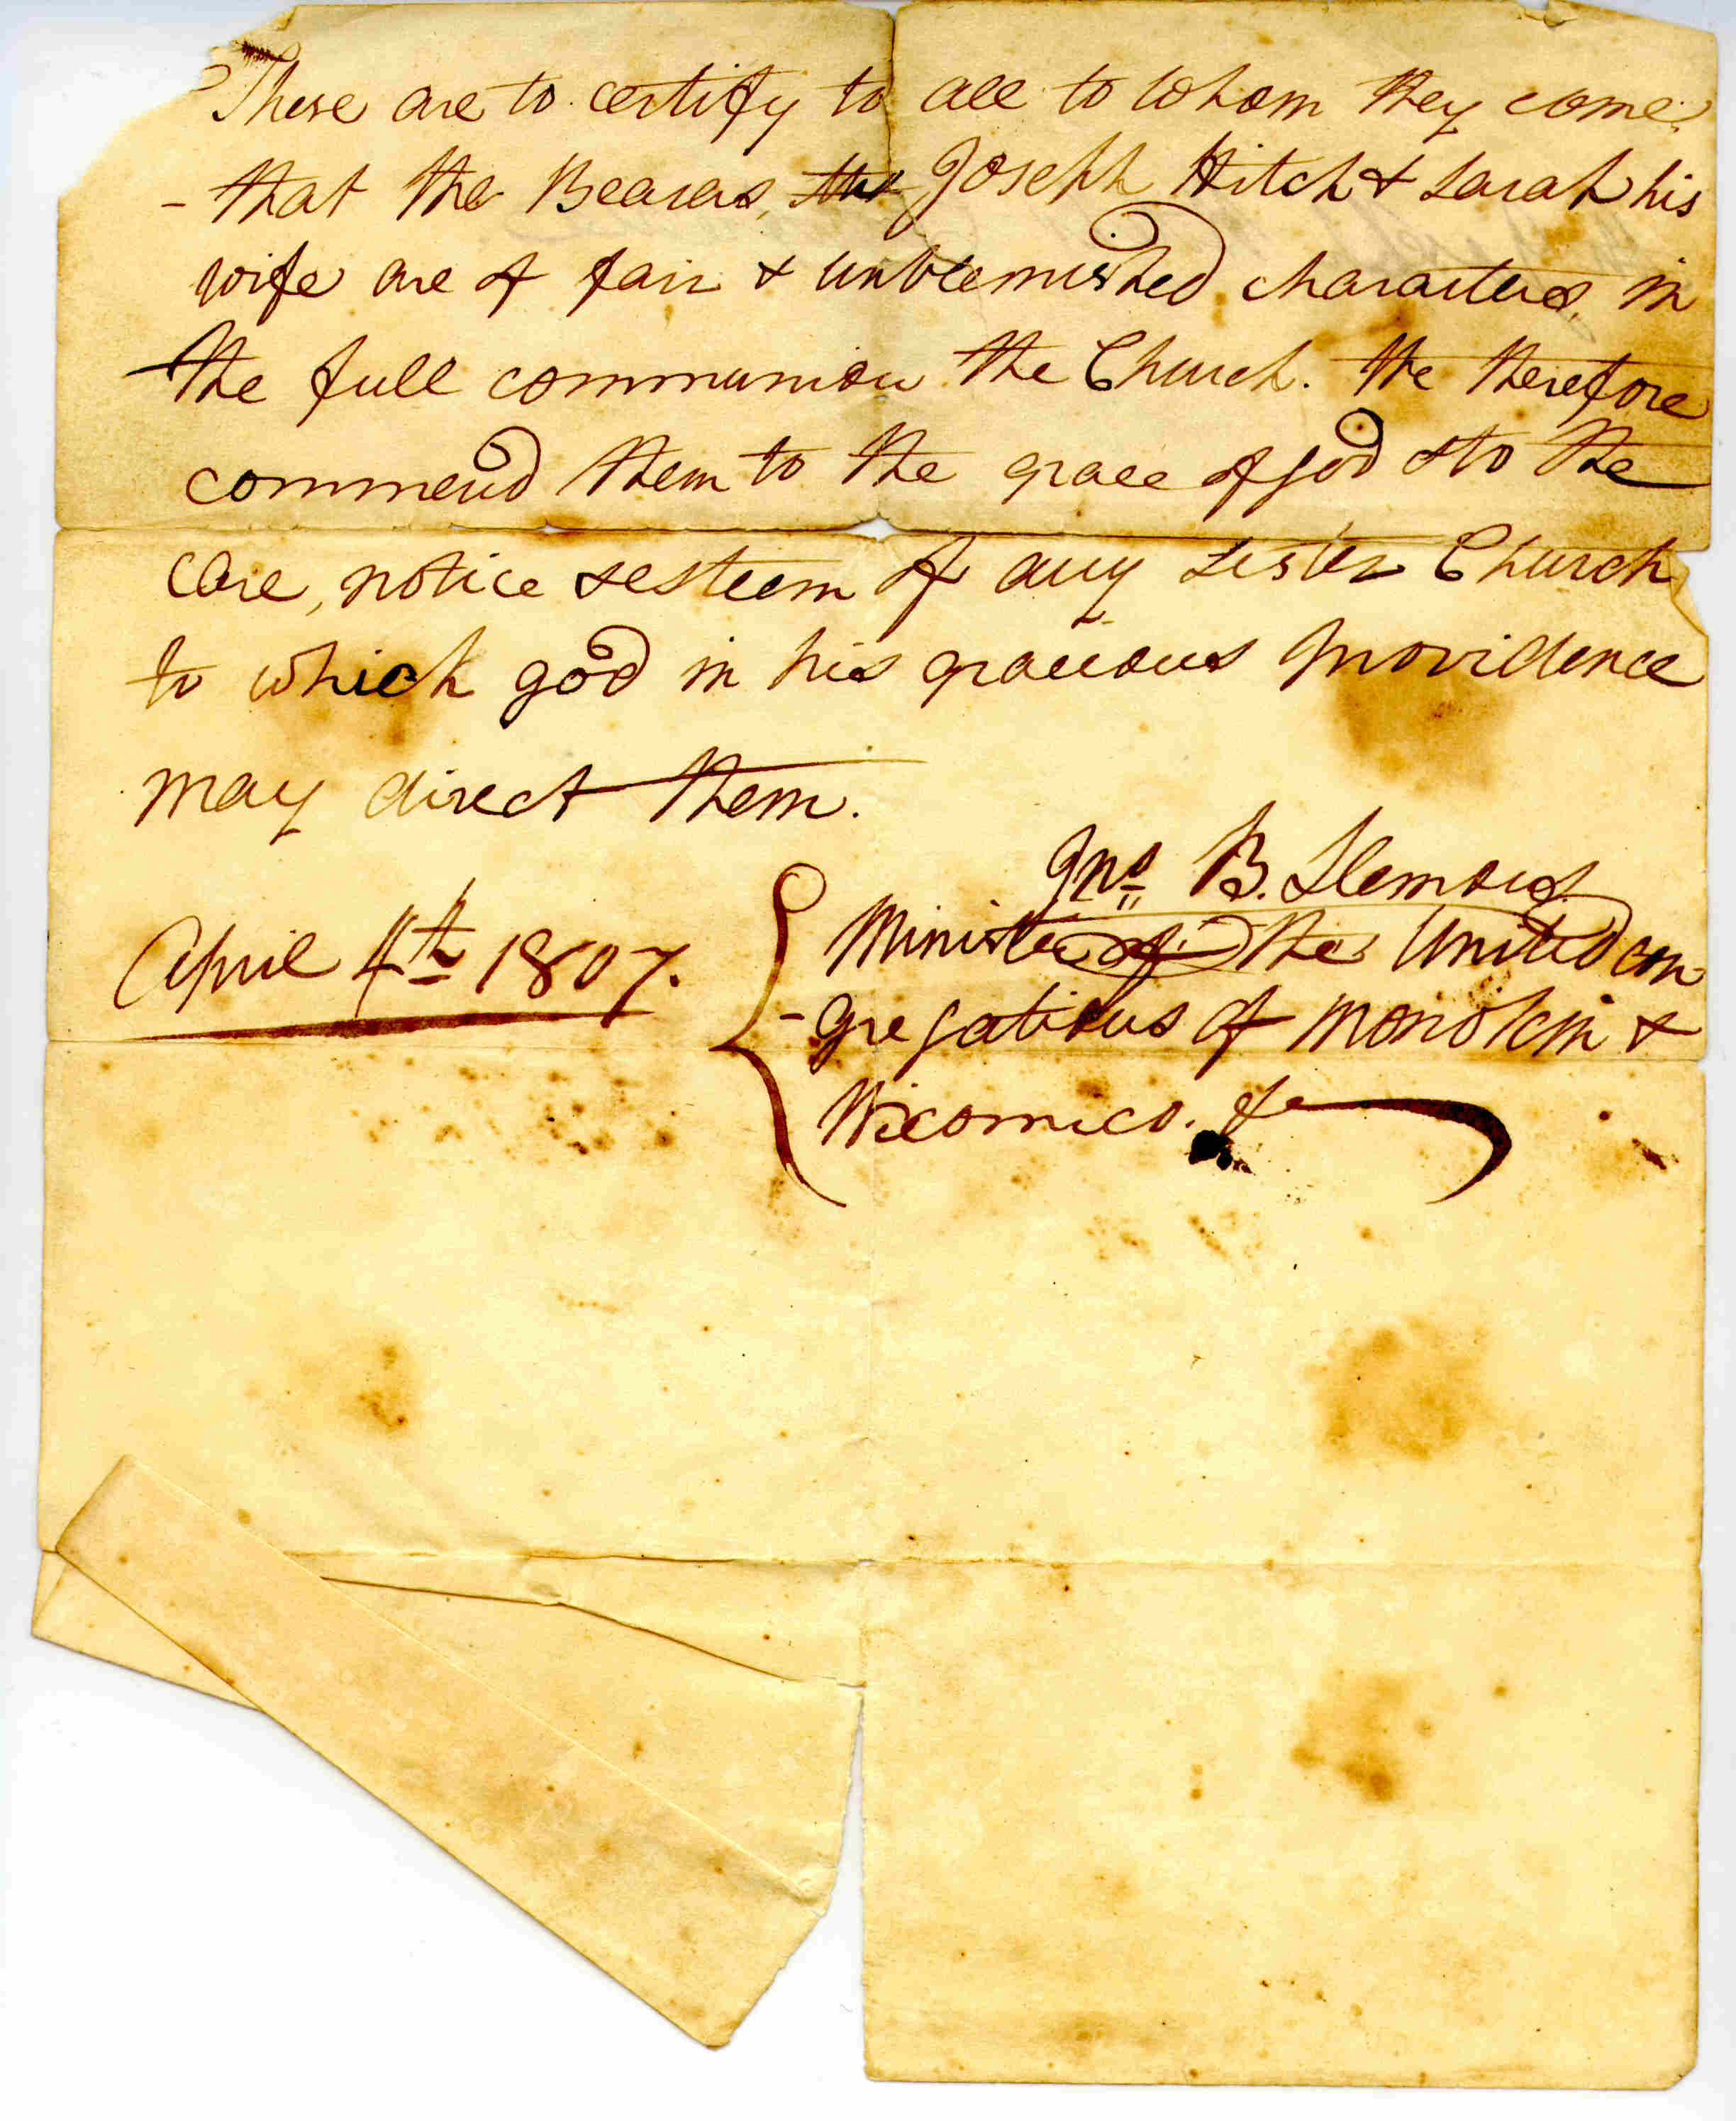 These are to certify to all to whom they come
- that the Bearers, the Joseph Hitch & Sarah his
wife are of fair & unblemished characters, in
the full communion the Church. We therefore
commend them to the grace of god & to the
care, notice & esteem of any sister Church
to which god in his gracious providence
may direct them.
Jno. B. Slemons
April 4th 1807. Minister of the United con
-gregations of Monokin &
Wicomico. &c